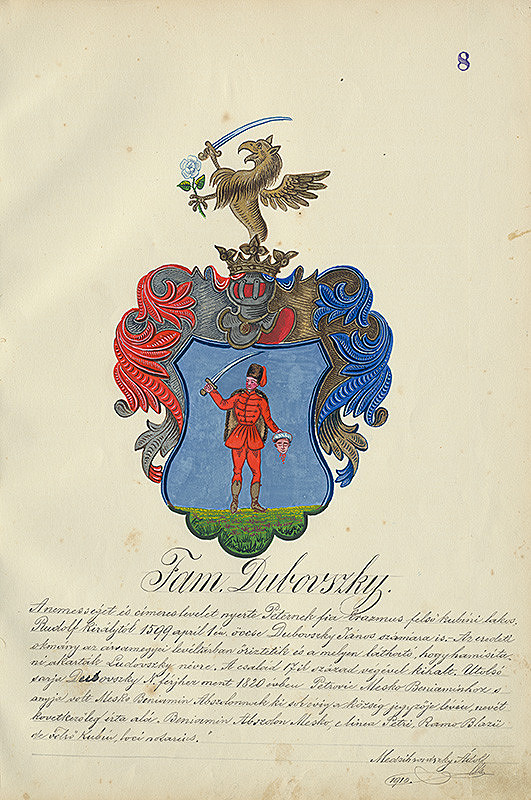 8
Fam. Dubovszky.
A nemességet és címereslevelet nyerte Péternek fia Erazmus felső kubini lakos,
Rudolf királytól 1599 april 1én öccse Dubovszky János számára is. - Az eredeti
okmány az árvamegyei levéltárban őriztetik és a melyen látható, hogy hamisíta-
ni akarták Ludovszky névre. A család 17ik század végével kihalt. Utolsó
sarja Dubovszky N férjhez ment 1820 évben Petrovics Mesko Beniaminhoz s
anyja volt Mesko Beniamin Absolonnak ki s község jegyzője lévén, nevét
következőleg írta alá: Beniamin Absolon Mesko, e linea Petri, Ramo Blazii
de Felső Kubin, loci notarius."
Medzihradszky Adolf
1912.